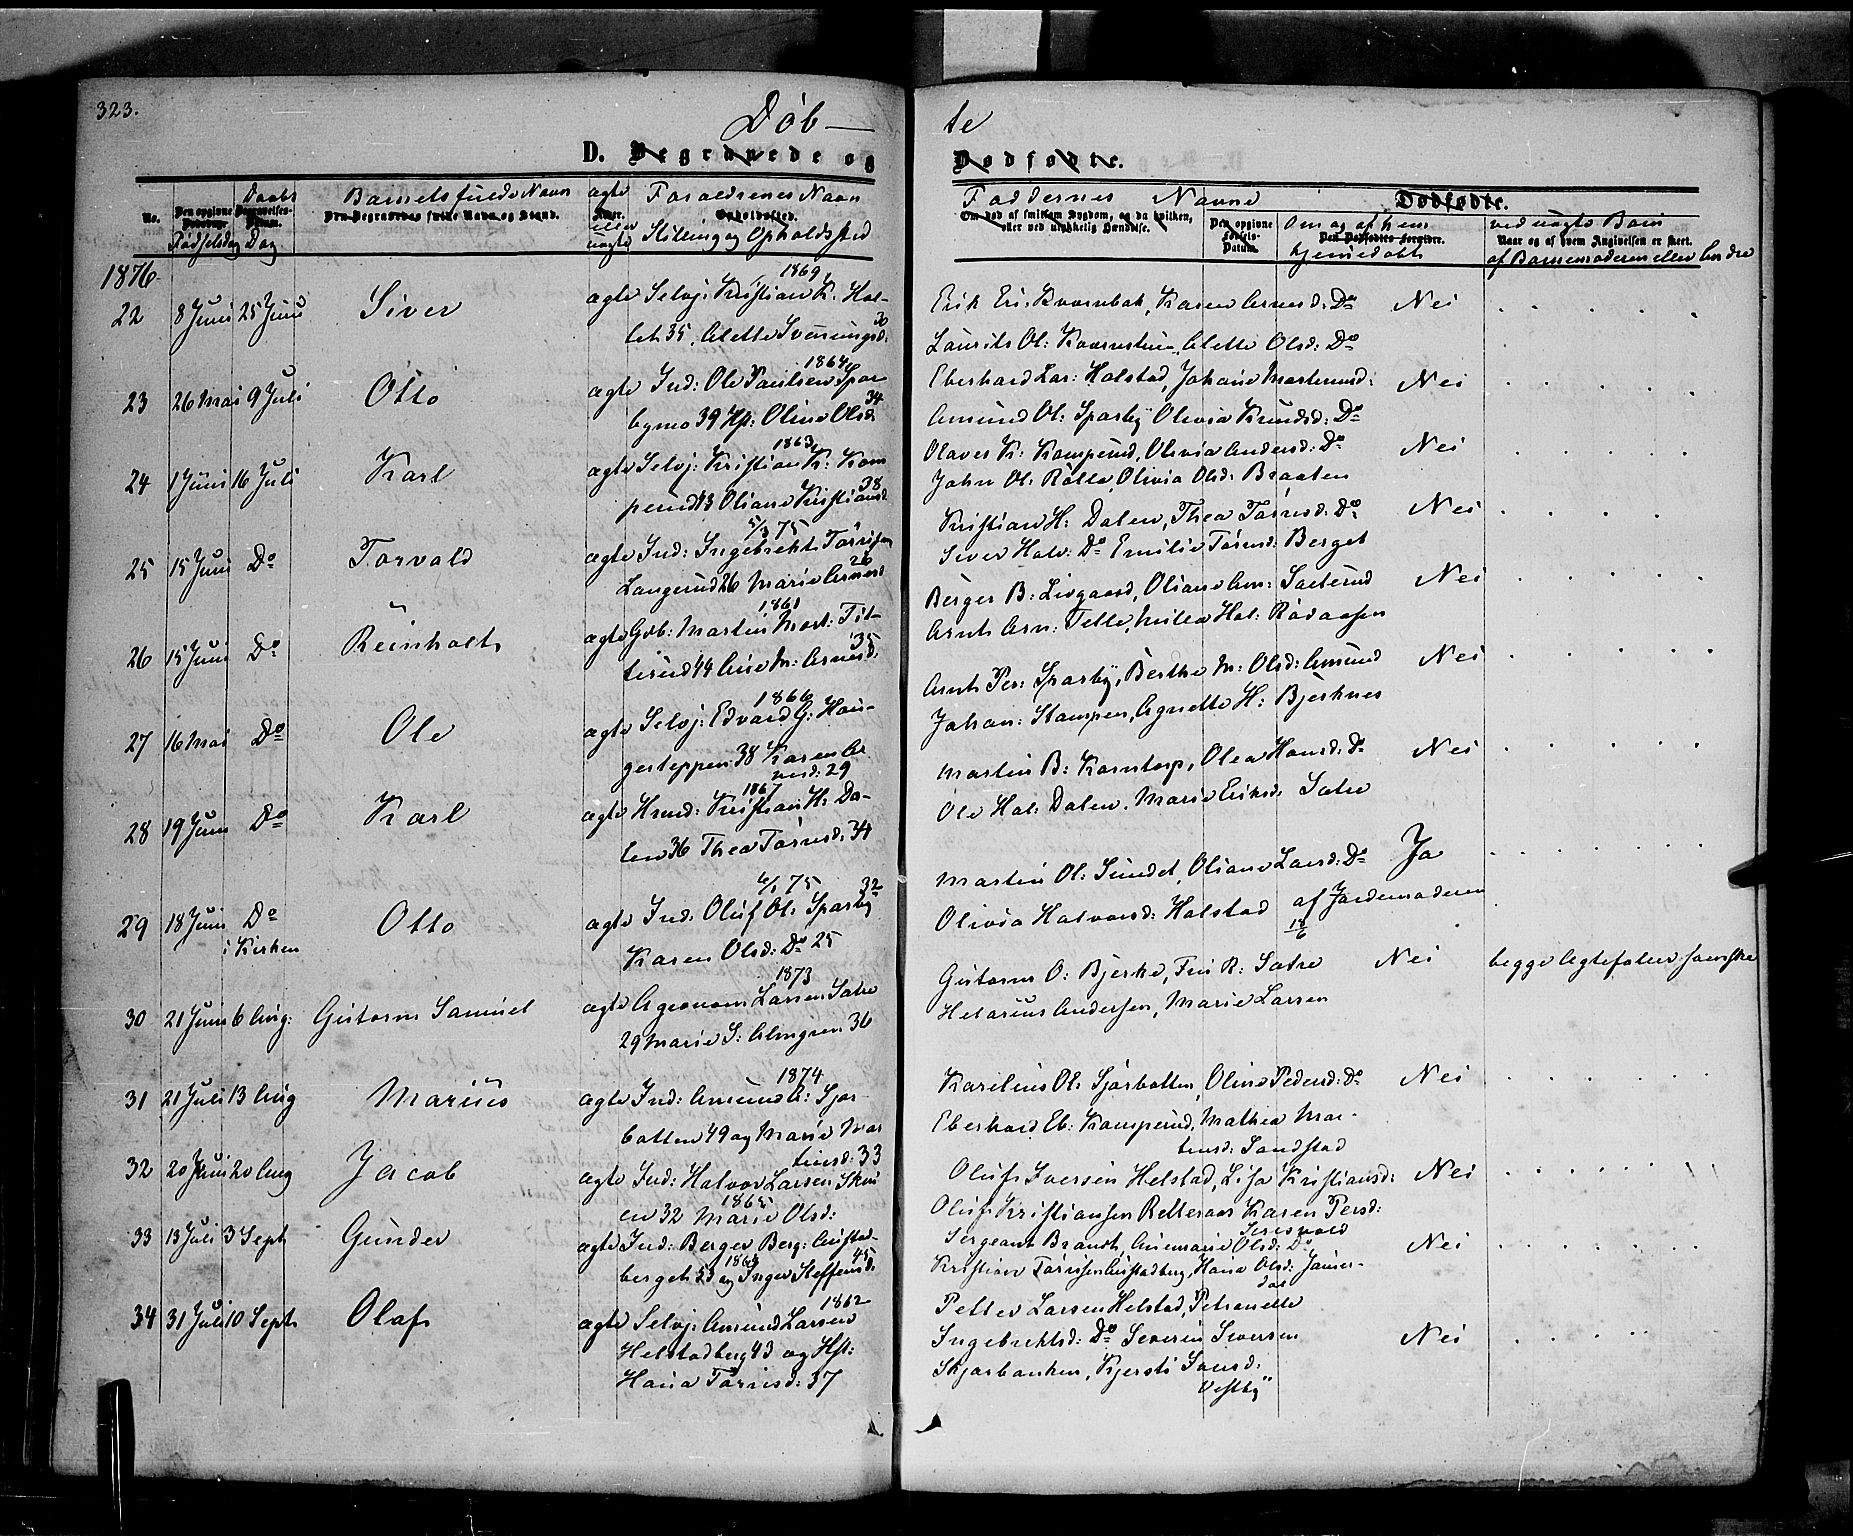 323.
Døb — te
D. Begravede og Dødfødte.
No.
Den opgivne Dødsdag
Fødselsdag
Daabs
Begravelses-Datum.
Dag
Barnets fulde Navn
Den Begravedes fulde Navn og Stand.
ægte
Alder.
eller
uægte
Forældrenes Navn
Opholdssted.
Stilling og Opholdsted
Faddernes Navne
Om død af smitsom Sygdom, og da hvilken,
eller ved ulykkelig Hændelse.
Den opgivne
Fødsels-
Datum.
Dødfødte.
Om og af hvem
Den Dødfødtes Forældre.
hjemmedøbt
ved uægte Børn
Naar og af hvem Angivelsen er skeet.
af Barnemoderen eller andre
1876
22 8 Juni 25 Juni Siver ægte Selvj: Kristian K. Hal-
1869
let 35, Alette Sveinungsd: 30
Erik Er: Kvernbak, Karen Arnesd: Do Nei
Laurits Ol: Kvernstuen, Alette Olsd: Do
23 26 Mai 9 Juli Otto ægte Ind: Ole Paulsen Spar-
1864
bymo 39 Hst: Oline Olsd: 34
Eberhard Lar: Halstad, Johane Martinusd: Nei
Amund Ol: Sparby Olivia Knudsd: Do
24 1 Juni 16 Juli Karl ægte Selvj: Kristian K: Kam-
1863
perud 43 Oliane Kristiansd: 38
Olaves K: Kamperud, Olivia Andersd: Do Nei
John Ol: Rølla, Olivia Olsd: Braaten
25 15 Juni Do Torvald ægte Ind: Ingebrekt Tørrisen
75
Langerud 26 Marie Arnesd: 26
Kristian H: Dalen, Thea Tørrisd: Do Nei
Siver Halv: Do Emilie Tørrisd: Berget
26 15 Juni Do Reinholt ægte Gdb: Martin Mort: Tit-
1861
terud 44 Ane M: Arnesd: 35
Berger B: Livgaard, Oliane Am: Sæterud Nei
Arnt Arn: Velle, Milea Hal: Rødaasen
27 16 Mai Do Ole ægte Selvj: Edvard G: Hau-
1866
gerteppen 38 Karen Ar
nesd: 29
Arnt Per: Sparby, Berthe M: Olsd: Amund Nei
Johan: Stampen, Agnette H: Bjerknes
28 19 Juni Do Karl ægte Hmd: Kristian H: Da-
1867
len 36 Thea Tørrisd: 34
Martin B: Korntorp, Olea Hansd: Do Nei
Ole Hal: Dalen, Marie Eriksd: Sætre
29 18 Juni Do
i Kirken
Otto ægte Ind: Oluf Ol: Sparby 32
75
Karen Olsd: Do 25
Martin Ol: Sundet, Oliane Larsd: Do Ja
Olivia Halvorsd: Halstad af Jordemoderen
18/6
30 21 Juni 6 Aug: Gutorm Samuel ægte Agronom Larsen Sætre
1873
29 Marie S: Almgren 36
Gutorm O: Bjerke, Fin R: Sætre Nei begge Ægtefolen svenske
Helarius Andersen, Marie Larsen
31 21 Juli 13 Aug Marius ægte Ind: Amund A: Sjør-
1874
botten 49 og Marie Mar
tinsd: 33
Karelius Ol: Sjørbotten, Oline Pedersd: Do Nei
Eberhard Eb: Kamperud, Mathea Mar-
tinsd: Sandstad
32 20 Juni 20 Aug Jacob ægte Ind: Halvor Larsen Skui
1865
en 32 Marie Olsd:
Oluf Iversen Helstad, Lisa Kristiansd: Nei
Oluf Kristiansen Retteraas Karen Persd:
33 13 Juli 3 Sept Gunder ægte Ind: Berger Berg: Austad-
1863
berget 53 og Inger Steffensd: 45
Sergeant Brandt, Annemarie Olsd: Do Nei
Kristian Tørrisen Austadberg, Hana Olsd: Jamer-
dal
34 31 Juli 10 Sept Olaf ægte Selvj: Amund Larsen
1862
Helstadberg 43 og Hst:
Hana Tørrisd: 37
Petter Larsen Helstad, Petronelle
Ingebrektsd: Do Severin Siversen Nei
Skjærbanken, Kjersti Jansd:
Vestby